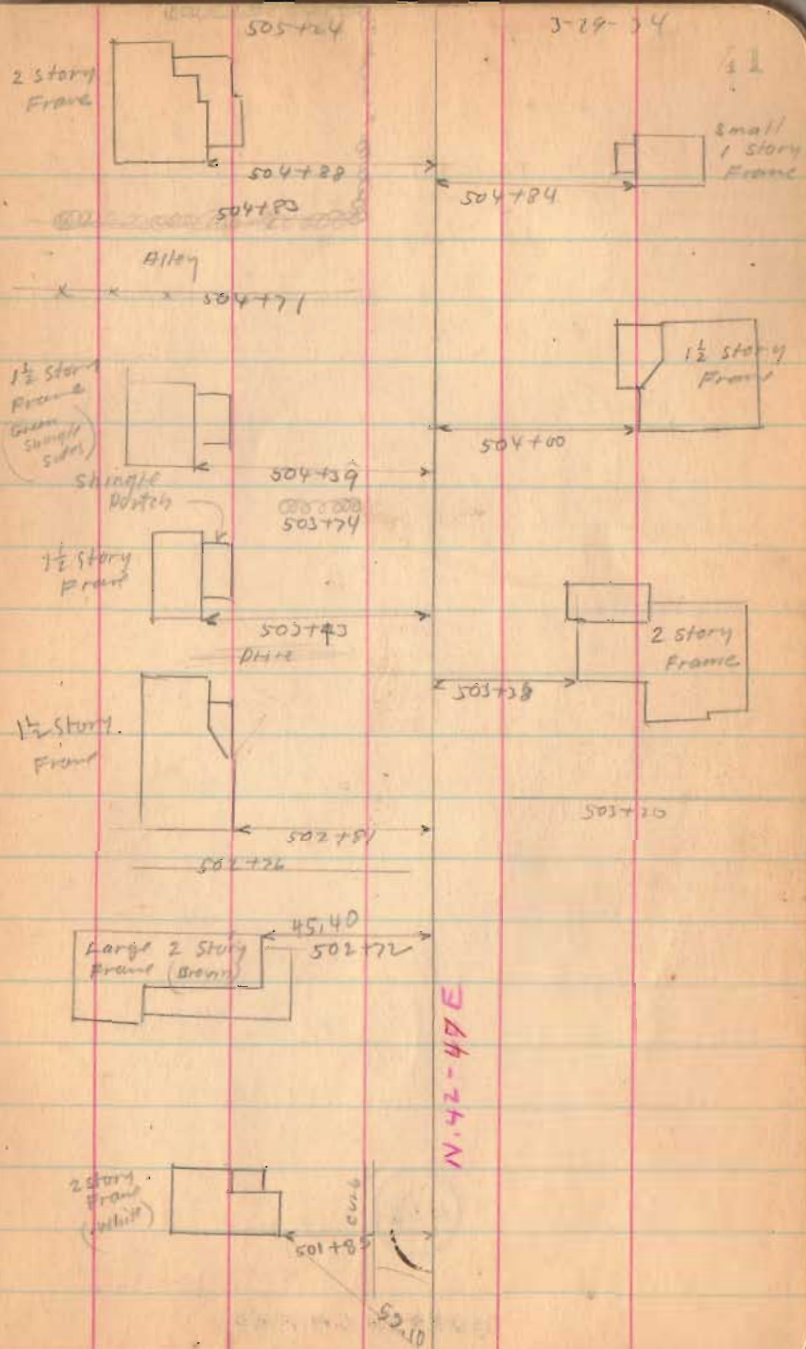 505+24
3-29-34
41
2 Story
Frame
Small
1 Story
Frame
504+88
504+84
504+83
Alley
x x x 504+71
1½ Story
Frame
(Green
Shingle
Sides)
1½ Story
Frame
504+00
504+39
Shingle
Portch
503+74
1½ Story
Frame
503+43
Drive
2 Story
Frame
503+38
1½ Story
Frame
503+20
502+81
502+76
45.40
Large 2 Story
Frame (Brown)
502+72
N. 42-47 E
2 Story
Frame
(White)
curb
501+85